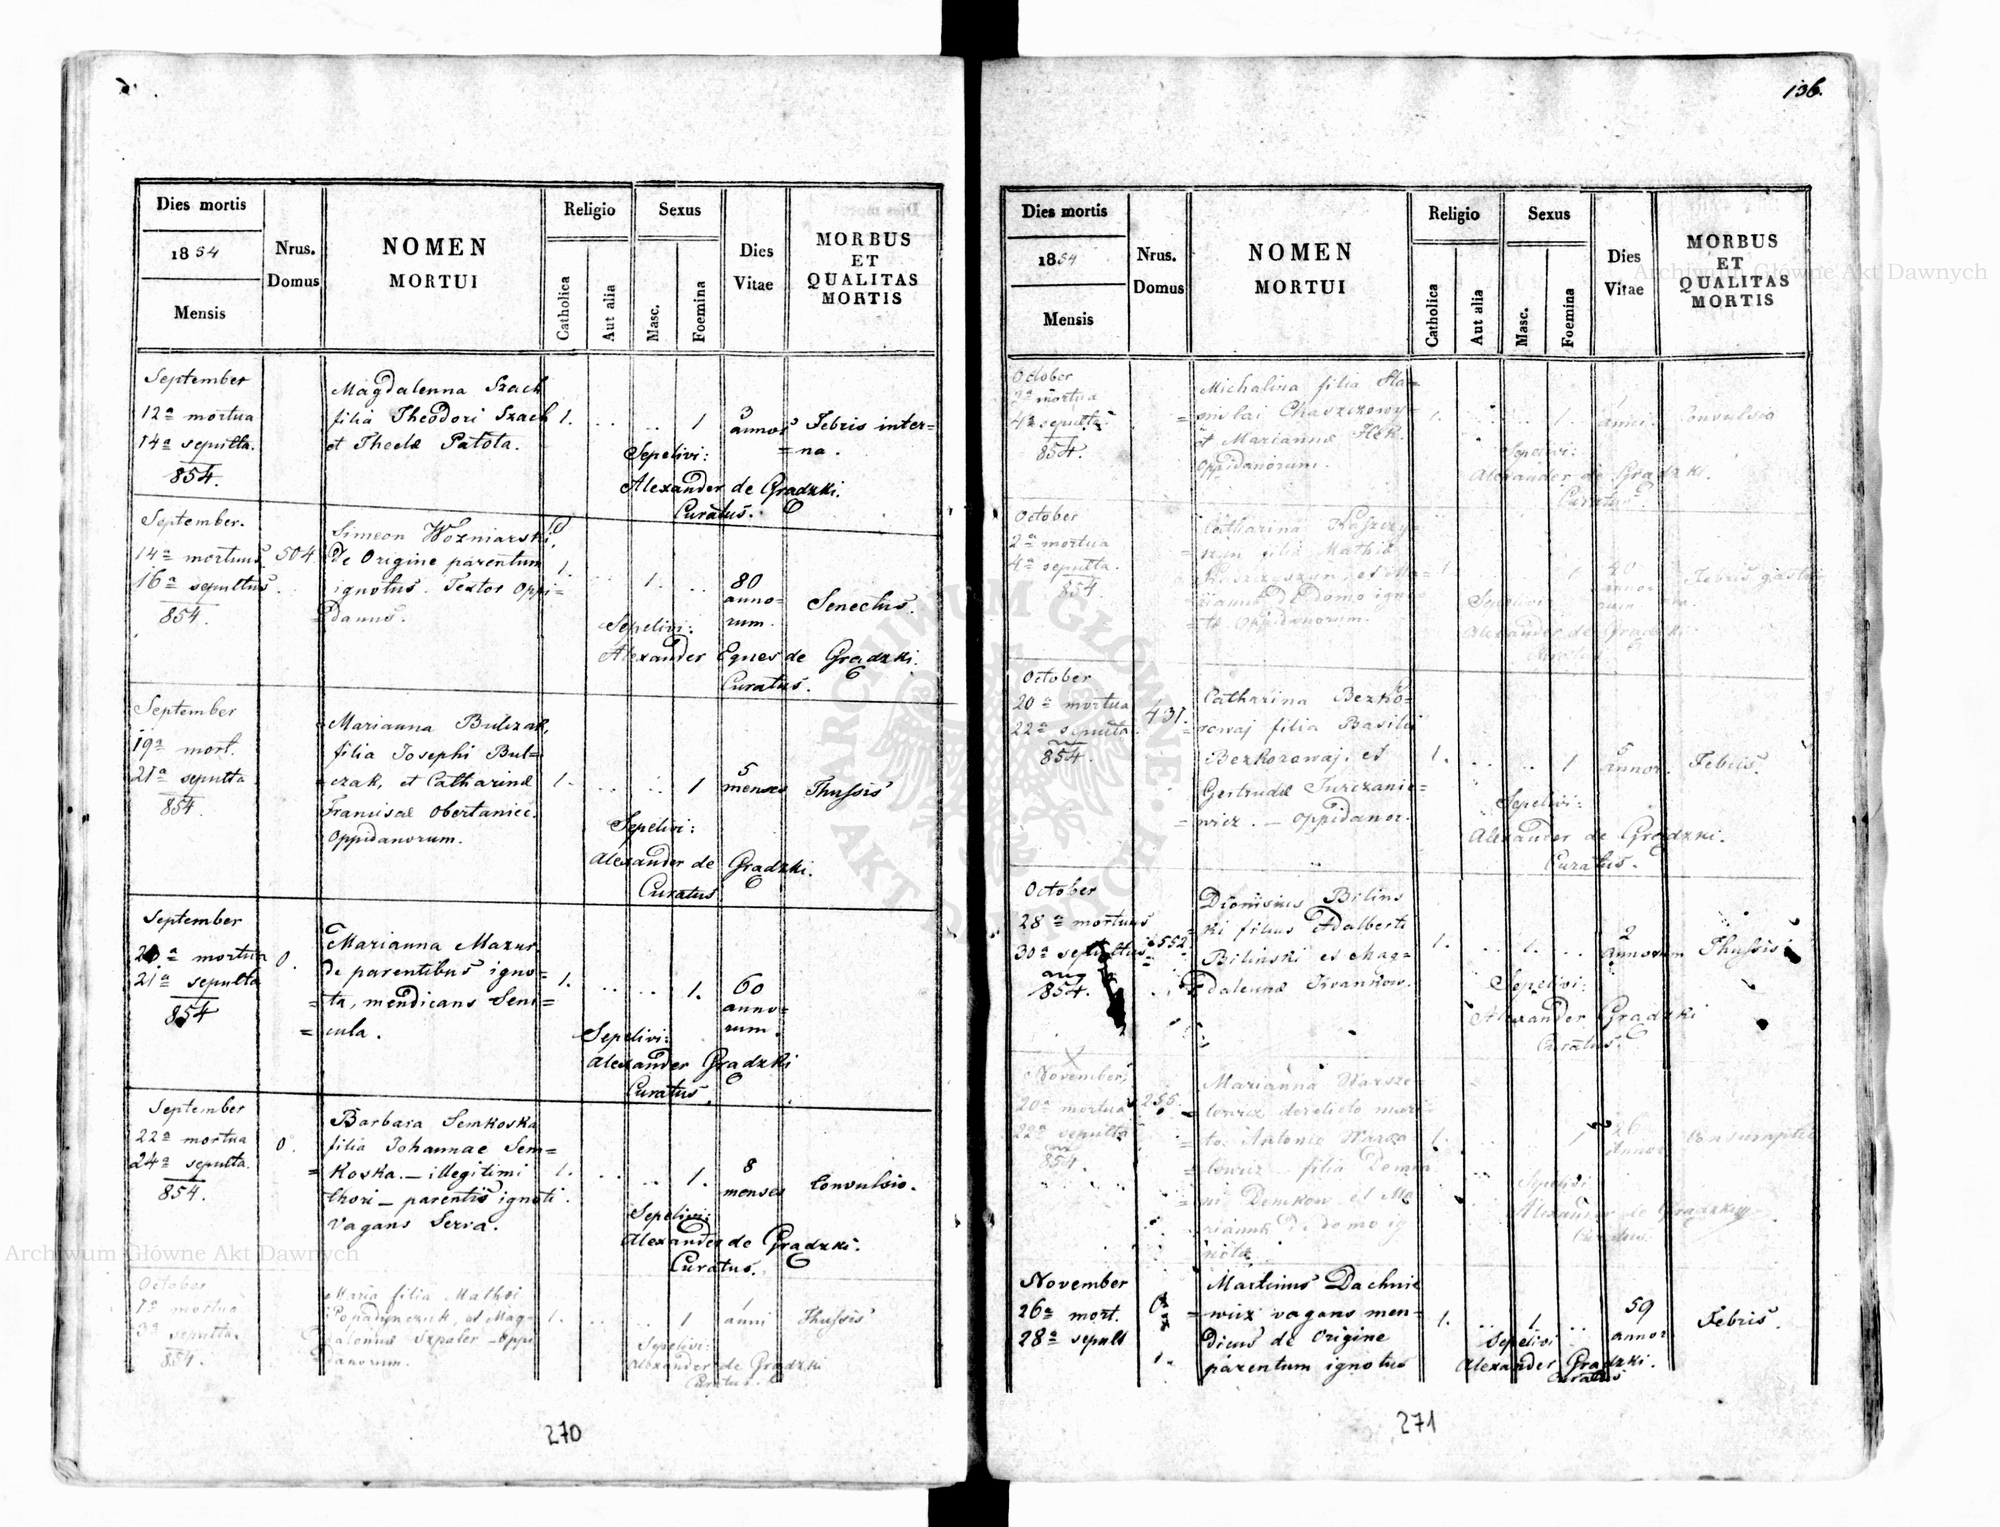 136.
Dies mortis
1854
Mensis
Nrus.
Domus
NOMEN
MORTUI
Religio
Catholica
Aut alia
Sexus
Masc.
Foemina
Dies
Vitae
MORBUS
ET
QUALITAS
MORTIS
September
12a mortua
14a sepulta.
854.
Magdalenna Szach
filia Theodori Szach
et Theclæ Patota.
1. .. .. 1
3
annor
Febris inter=
=na.
Sepelivi:
Alexander de Gradzki.
Curatus.
September.
14a mortuus
16a sepultus
854.
504.
Simeon Wozniarski
de Origine parentum
ignotus. Textor Oppi=
=danus.
1. .. 1. ..
80
anno=
rum.
Senectus.
Sepelivi:
Alexander Eques de Gradzki.
Curatus.
September
19a mort.
21a sepulta
854.
Marianna Bulczak,
filia Josephi Bul=
=czak, et Catharinæ
Francisæ Obertaniec.
Oppidanorum.
1. .. .. 1
5
menses
Thussis
Sepelivi:
Alexander de Gradzki.
Curatus
September
20a mortua
21a sepulta
854
0.
Marianna Mazur,
de parentibus igno=
=ta, mendicans Seni=
=cula.
1. .. .. 1.
60
anno=
rum.
Sepelivi:
Alexander Gradzki
Curatus.
September
22a mortua
24a sepulta.
854.
0.
Barbara Semkoska
filia Johannae Sem=
=koska. — illegitimi
thori — parentis ignoti.
Vagans Serva.
1. .. .. 1.
8
menses
Convulsio.
Sepelivi:
Alexander de Gradzki.
Curatus.
October
1a mortua
3a sepulta.
854.
Maria filia Mathei
et Mag=
dalennæ Szpaler — Oppi
danorum.
1. .. .. 1
1
anni
Thussis
Sepelivi:
Alexander de Gradzki
Curatus.
270
Dies mortis
1854
Mensis
Nrus.
Domus
NOMEN
MORTUI
Religio
Catholica
Aut alia
Sexus
Masc.
Foemina
Dies
Vitae
MORBUS
ET
QUALITAS
MORTIS
October
2a mortua
4a sepulta.
854.
Michalina filia Sta=
=nislai Chaszczowy=
et Mariannæ
Oppidanorum.
1. .. .. 1.
1
anni.
Convulsio
Sepelivi:
Alexander de Gradzki.
Curatus
October
2a mortua
4a sepulta.
854
Catharina
filia Mathiæ
et Ma=
riannæ de domo igno=
tæ Oppidanorum.
1
40
anno=
rum
Febris gastri=
Sepelivi
Alexander de Gradzki
October
20a mortua
22a sepulta.
854.
431.
Catharina Bezko=
=rowaj filia Basilii
Bezkorowaj, et
Gertrudæ Turczanie=
=wicz. — Oppidanor.
1. .. .. 1
5
annor.
Febris.
Sepelivi:
Alexander de Gradzki.
Curatus.
October
28a mortuus
30a sepultus
854.
552.
Dionisius Bilins
ki filius Adalberti
Bilinski et Mag=
dalenæ Iwankow.
1. .. 1. ..
2
annorum
Thussis
Sepelivi:
Alexander Gradzki
Curatus.
November
20a mortua
22a sepulta
854.
256.
Marianna
derelicto mari=
to Antonio
filia
Demkow et Ma
riannæ de domo ig
notæ
1. .. .. 1
annor
Sepelivi
Alexander de Gradzki
Curatus.
November
26a mort.
28a sepult
0
Martinus Dachnie
=wicz vagans men=
dicus de Origine
parentum ignotus
1. .. 1. ..
59
annor.
Febris.
Sepelivi
Alexander Gradzki.
Curatus
271
Archiwum Główne Akt Dawnych
ARCHIWUM GŁÓWNE AKT DAWNYCH
Archiwum Główne Akt Dawnych